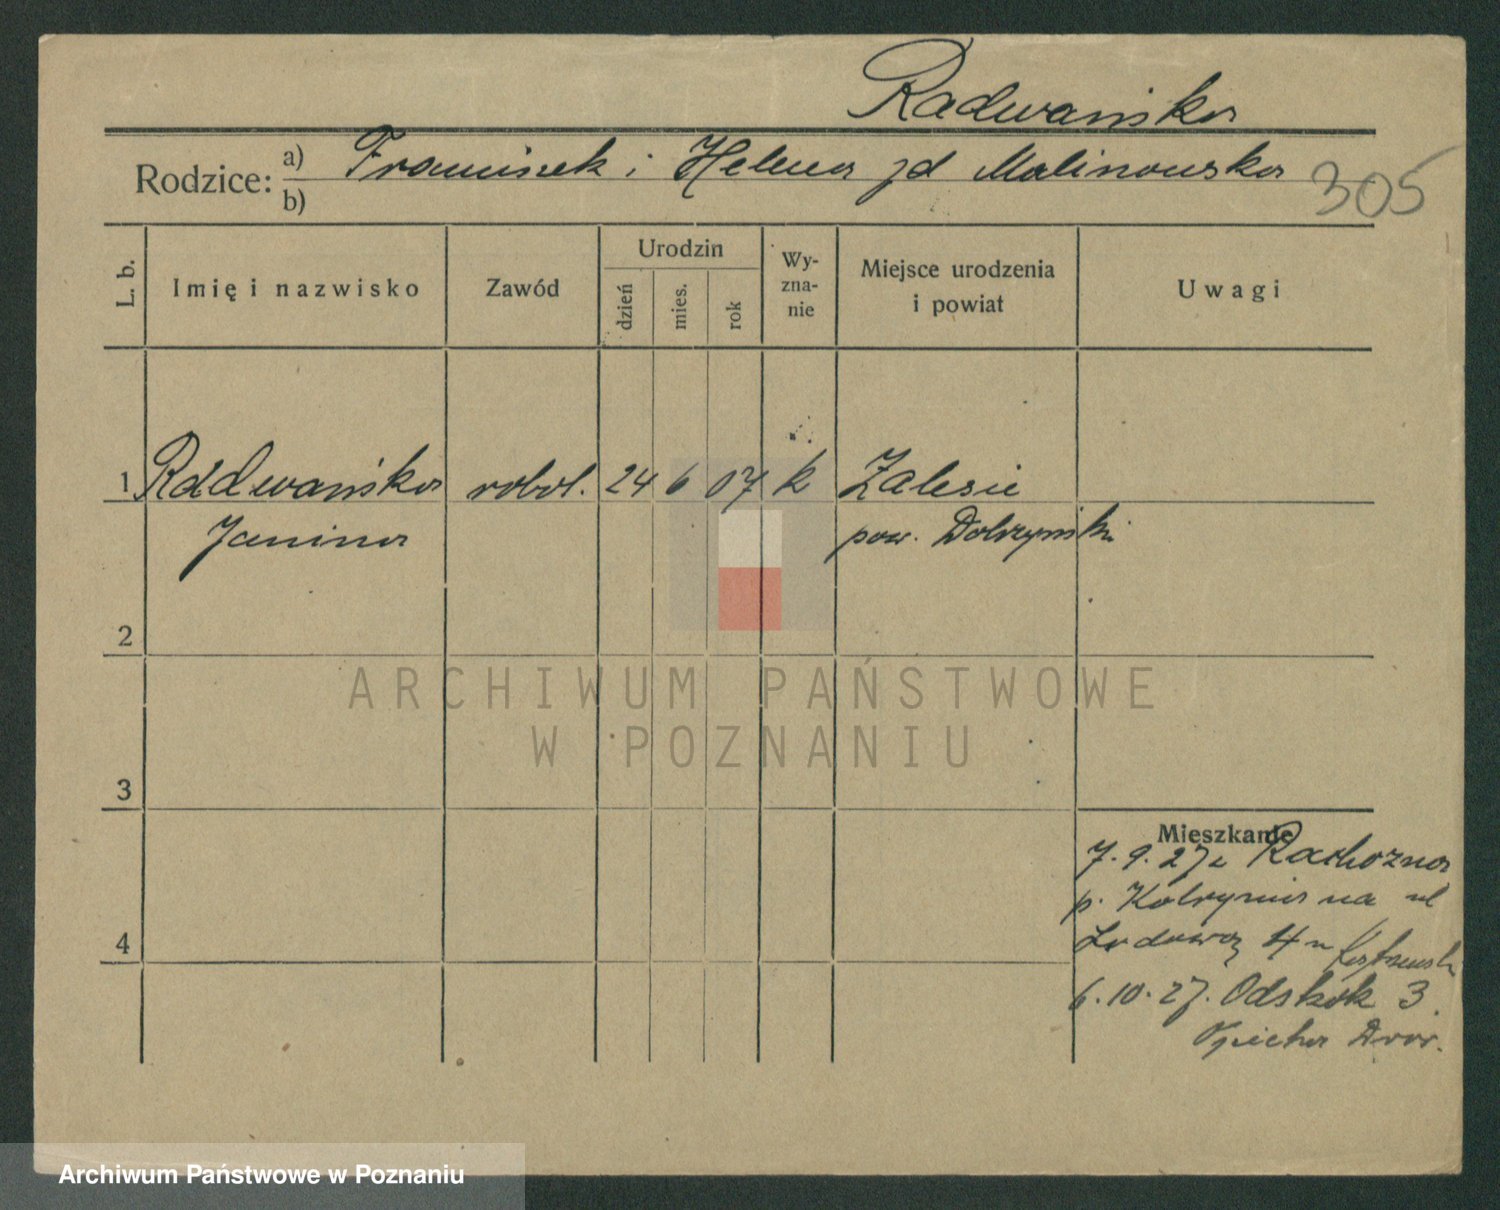 Radwańska
Rodzice: a) Franciszek i Helena zd Malinowska
b)
305
L. b. Imię i nazwisko Zawód Urodzin dzień mies. rok Wy-zna-nie Miejsce urodzenia i powiat Uwagi
1 Radwańska robot. 24 6 07 k Zalesie
Janina pow. Dobrzyński
2
ARCHIWUM PAŃSTWOWE
W POZNANIU
3
Mieszkanie
7.9.27 z
p. na ul
4
6.10.27. Odskok 3.
Archiwum Państwowe w Poznaniu